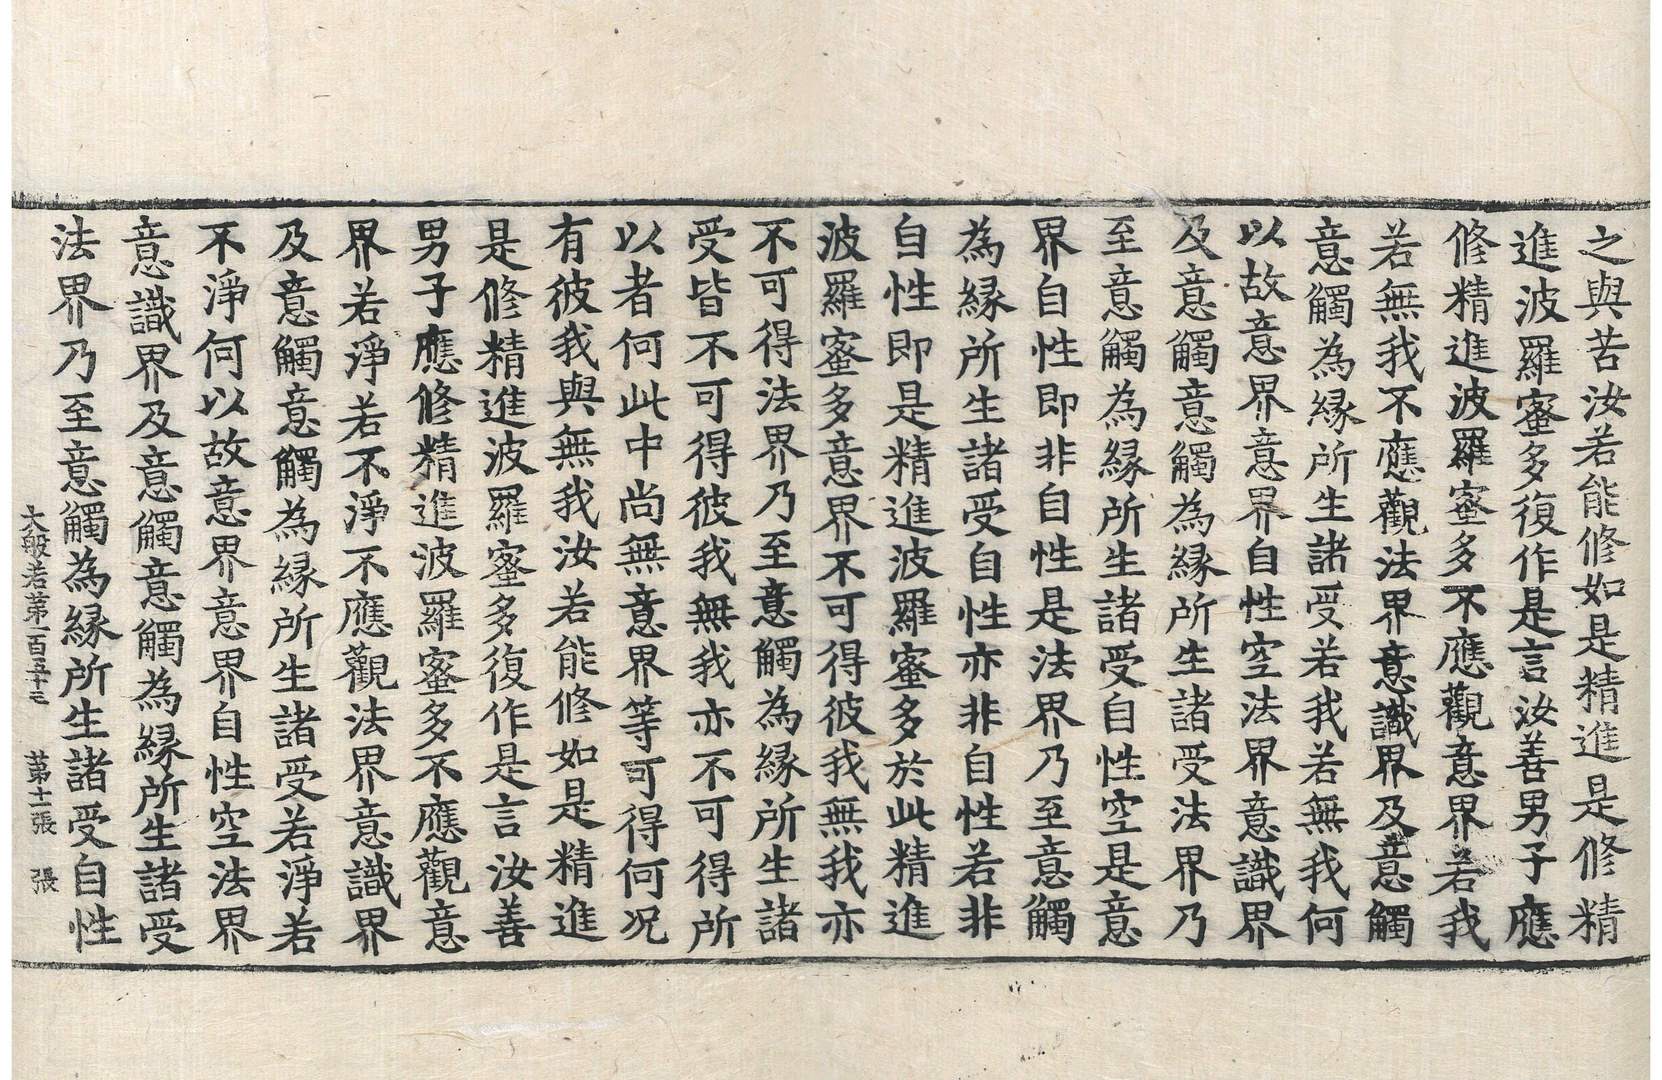 之與苦汝若能修如是精進是修精
進波羅蜜多復作是言汝善男子應
修精進波羅蜜多不應觀意界若我
若無我不應觀法界意識界及意觸
意觸為緣所生諸受若我若無我何
以故意界意界自性空法界意識界
及意觸意觸為緣所生諸受法界乃
至意觸為緣所生諸受自性空是意
界自性即非自性是法界乃至意觸
為緣所生諸受自性亦非自性若非
自性即是精進波羅蜜多於此精進
波羅蜜多意界不可得彼我無我亦
不可得法界乃至意觸為緣所生諸
受皆不可得彼我無我亦不可得所
以者何此中尚無意界等可得何况
有彼我與無我汝若能修如是精進
是修精進波羅蜜多復作是言汝善
男子應修精進波羅蜜多不應觀意
界若淨若不淨不應觀法界意識界
及意觸意觸為緣所生諸受若淨若
不淨何以故意界意界自性空法界
意識界及意觸意觸為緣所生諸受
法界乃至意觸為緣所生諸受自性
大般若第一百五十三 第十一張 張